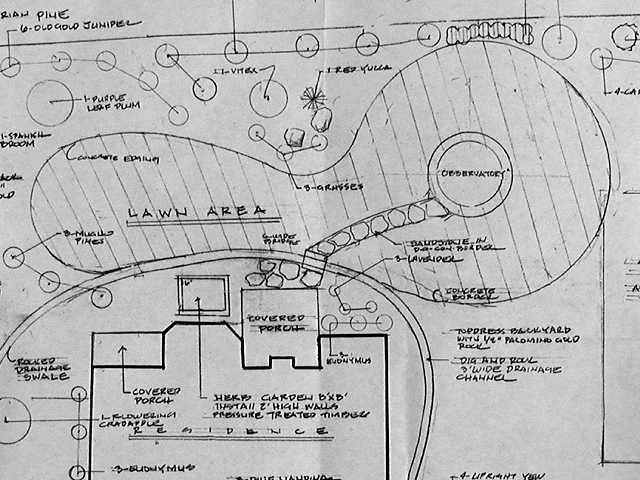 RIAN PINE
6-OLD GOLD JUNIPER
1-VITEX
1 RED YUCCA
1-PURPLE
LEAF PLUM
4-CA
1-SPANISH
BROOM
CONCRETE EDGING
OBSERVATORY
3-GRASSES
OLD
LAWN AREA
3-MUGHO
PINES
BRIDGE
SANDSTONE IN
BORDER
3-LAVENDER
CONCRETE
BORDER
COVERED
PORCH
3-
EUONYMUS
TOPDRESS BACKYARD
WITH 1/2" PALOMINO GOLD
ROCK
DIG AND ROCK
3' WIDE DRAINAGE
CHANNEL
ROCKED
DRAINAGE
SWALE
COVERED
PORCH
HERB GARDEN 8'X8'
INSTALL 2' HIGH WALLS
PRESSURE TREATED TIMBERS
1-FLOWERING
CRABAPPLE
RESIDENCE
3-EUONYMUS
NANDINA
4-UPRIGHT YEW